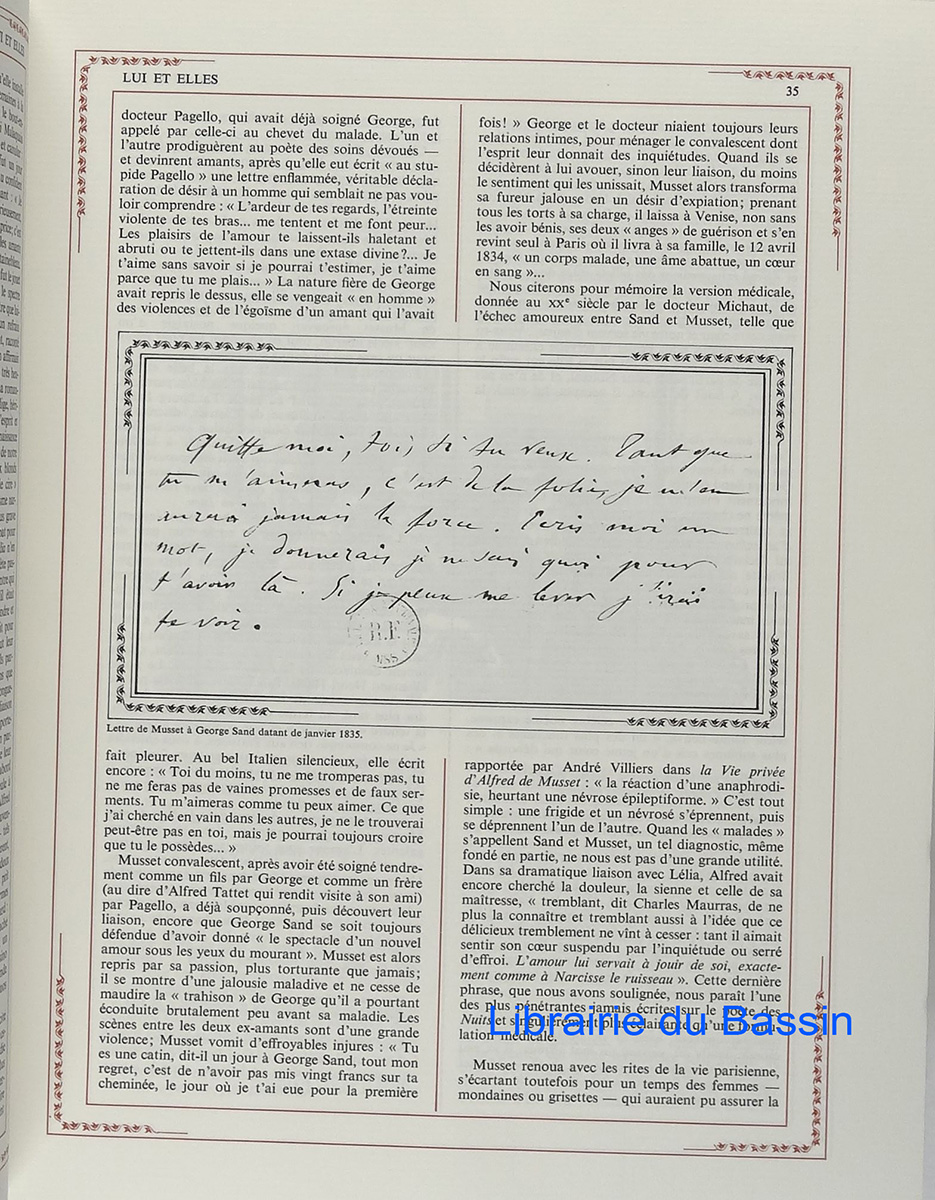 LUI ET ELLES
35
docteur Pagello, qui avait déjà soigné George, fut
appelé par celle-ci au chevet du malade. L'un et
l'autre prodiguèrent au poète des soins dévoués —
et devinrent amants, après qu'elle eut écrit « au stu-
pide Pagello » une lettre enflammée, véritable décla-
ration de désir à un homme qui semblait ne pas vou-
loir comprendre : « L'ardeur de tes regards, l'étreinte
violente de tes bras... me tentent et me font peur...
Les plaisirs de l'amour te laissent-ils haletant et
abruti ou te jettent-ils dans une extase divine ?... Je
t'aime sans savoir si je pourrai t'estimer, je t'aime
parce que tu me plais... » La nature fière de George
avait repris le dessus, elle se vengeait « en homme »
des violences et de l'égoïsme d'un amant qui l'avait
fois! » George et le docteur niaient toujours leurs
relations intimes, pour ménager le convalescent dont
l'esprit leur donnait des inquiétudes. Quand ils se
décidèrent à lui avouer, sinon leur liaison, du moins
le sentiment qui les unissait, Musset alors transforma
sa fureur jalouse en un désir d'expiation; prenant
tous les torts à sa charge, il laissa à Venise, non sans
les avoir bénis, ses deux « anges » de guérison et s'en
revint seul à Paris où il livra à sa famille, le 12 avril
1834, « un corps malade, une âme abattue, un cœur
en sang »...
Nous citerons pour mémoire la version médicale,
donnée au XXe siècle par le docteur Michaut, de
l'échec amoureux entre Sand et Musset, telle que
Quitte moi, toi, si tu veux. Tant que
tu m'aimeras, c'est de la folie, je n'en
aurai jamais la force. Ecris moi un
mot, je donnerais je ne sais quoi pour
t'avoir là. Si je peux me lever j'irai
te voir.
R.F.
MSS
Lettre de Musset à George Sand datant de janvier 1835.
fait pleurer. Au bel Italien silencieux, elle écrit
encore : « Toi du moins, tu ne me tromperas pas, tu
ne me feras pas de vaines promesses et de faux ser-
ments. Tu m'aimeras comme tu peux aimer. Ce que
j'ai cherché en vain dans les autres, je ne le trouverai
peut-être pas en toi, mais je pourrai toujours croire
que tu le possèdes... »
Musset convalescent, après avoir été soigné tendre-
ment comme un fils par George et comme un frère
(au dire d'Alfred Tattet qui rendit visite à son ami)
par Pagello, a déjà soupçonné, puis découvert leur
liaison, encore que George Sand se soit toujours
défendue d'avoir donné « le spectacle d'un nouvel
amour sous les yeux du mourant ». Musset est alors
repris par sa passion, plus torturante que jamais;
il se montre d'une jalousie maladive et ne cesse de
maudire la « trahison » de George qu'il a pourtant
éconduite brutalement peu avant sa maladie. Les
scènes entre les deux ex-amants sont d'une grande
violence; Musset vomit d'effroyables injures : « Tu
es une catin, dit-il un jour à George Sand, tout mon
regret, c'est de n'avoir pas mis vingt francs sur ta
cheminée, le jour où je t'ai eue pour la première
rapportée par André Villiers dans la Vie privée
d'Alfred de Musset : « la réaction d'une anaphrodi-
sie, heurtant une névrose épileptiforme. » C'est tout
simple : une frigide et un névrosé s'éprennent, puis
se déprennent l'un de l'autre. Quand les « malades »
s'appellent Sand et Musset, un tel diagnostic, même
fondé en partie, ne nous est pas d'une grande utilité.
Dans sa dramatique liaison avec Lélia, Alfred avait
encore cherché la douleur, la sienne et celle de sa
maîtresse, « tremblant, dit Charles Maurras, de ne
plus la connaître et tremblant aussi à l'idée que ce
délicieux tremblement ne vînt à cesser : tant il aimait
sentir son cœur suspendu par l'inquiétude ou serré
d'effroi. L'amour lui servait à jouir de soi, exacte-
ment comme à Narcisse le ruisseau ». Cette dernière
phrase, que nous avons soulignée, nous paraît l'une
des plus pénétrantes jamais écrites sur le poète des
Nuits et singulièrement plus éclairante qu'une
lation médicale.
Librairie du Bassin
Musset renoua avec les rites de la vie parisienne,
s'écartant toutefois pour un temps des femmes —
mondaines ou grisettes — qui auraient pu assurer la